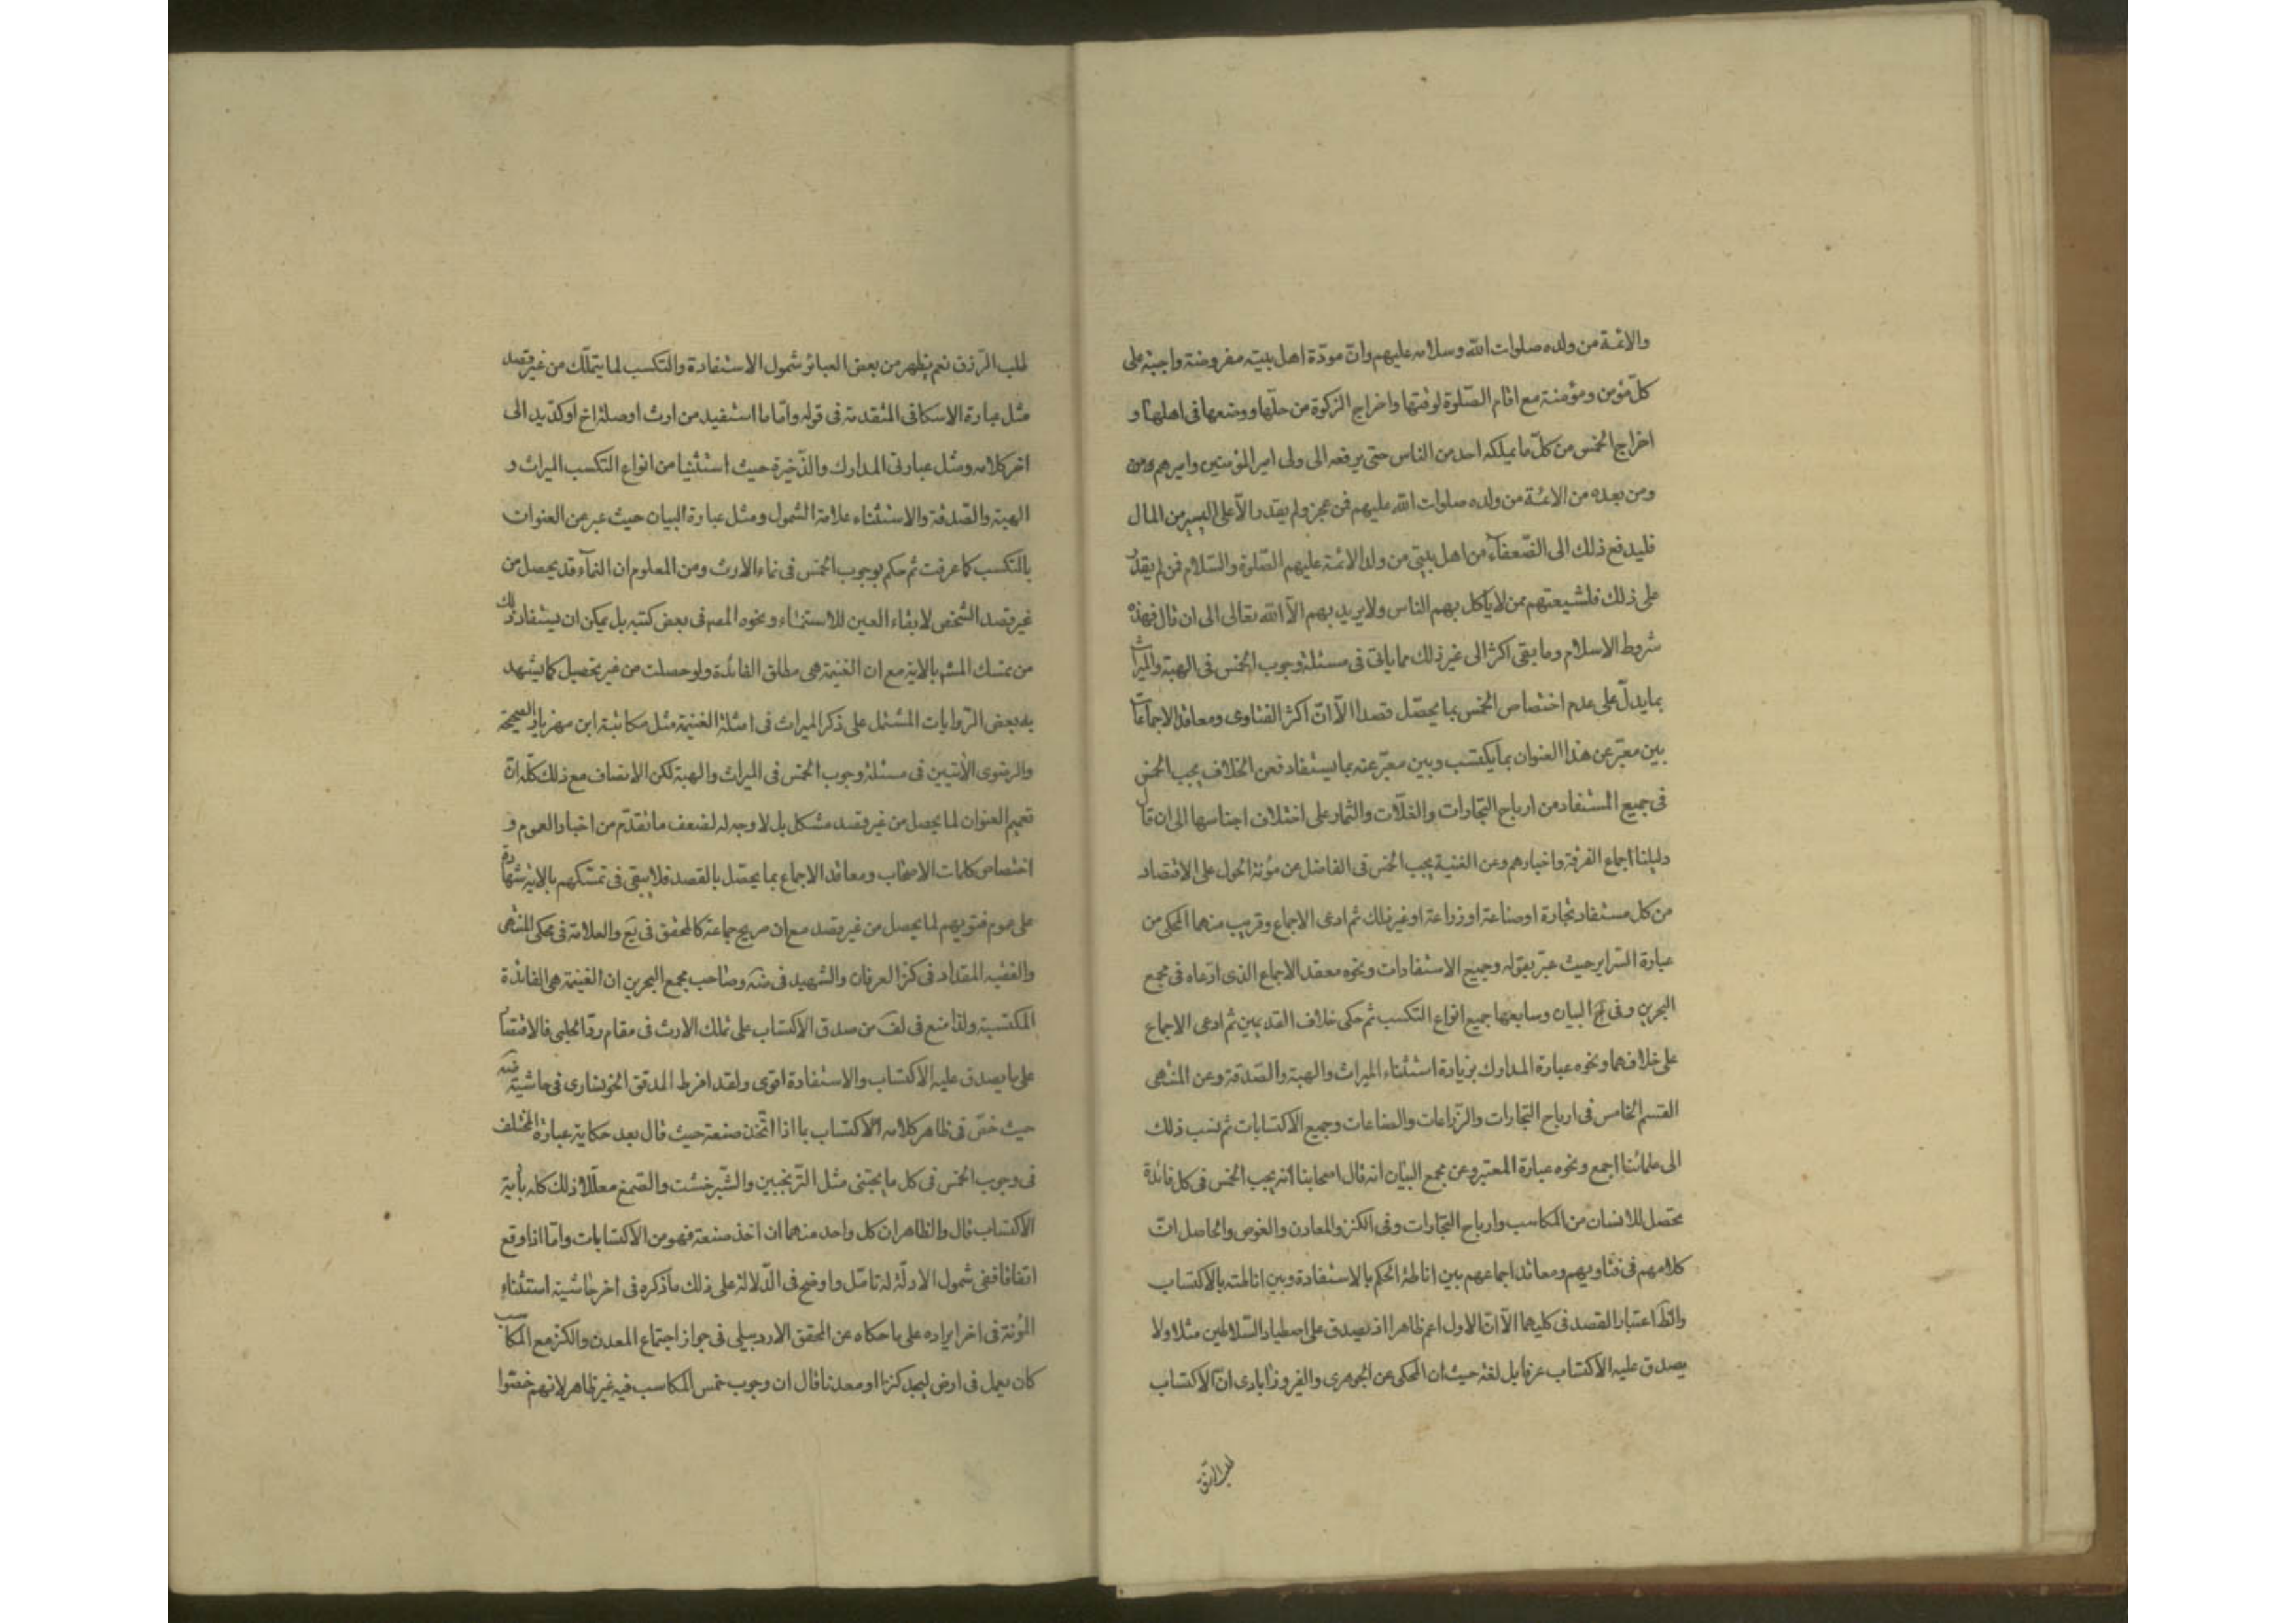 والائمة من ولده صلوات الله وسلامه عليهم وانّ مودّة اهل بيته مفروضة واجبة على
كلّ مؤمن ومؤمنة مع اقام الصّلوة لوقتها واخراج الزكوة من حلّها ووضعها فى اهلها و
اخراج الخمس من كلّ ما يملكه احد من الناس حتى يرفعه الى ولى امير المؤمنين واميرهم ومن
ومن بعده من الائمّة من ولده صلوات الله عليهم فمن عجز ولم يقدر الاّ على اليسير من المال
فليدفع ذلك الى الضّعفاء من اهل بيتى من ولد الائمة عليهم الصّلوة والسّلام فمن لم يقدر
على ذلك فلشيعتهم ممن لا يأكل بهم الناس ولا يريد بهم الاّ الله تعالى الى ان قال فهذه
شروط الاسلام وما بقى اكثر الى غير ذلك مما ياتى فى مسئلة وجوب الخمس فى الهبة والميراث
بما يدلّ على عدم اختصاص الخمس بما يحصّل قصدا الاّ انّ اكثر الفتاوى ومعاقد الاجماعات
بين معبّر عن هذا العنوان بما يكتسب وبين معبّر عنه بما يستفاد فعن الخلاف يجب الخمس
فى جميع المستفاد من ارباح التجارات والغلاّت والثمار على اختلاف اجناسها الى ان قال
دليلنا اجماع الفرقة واخبارهم وعن الغنية يجب الخمس فى الفاضل عن مؤنة الحول على الاقتصاد
من كل مستفاد بتجارة او صناعة او زراعة او غير ذلك ثم ادعى الاجماع وقريب منهما المحكى من
عبارة السّراير حيث عبّر بقوله وجميع الاستفادات ونحوه معقد الاجماع الذى ادّعاه فى مجمع
البحرين وفى البيان وسابعها جميع انواع التكسب ثم حكى خلاف القديمين ثم ادعى الاجماع
على خلافهما ونحوه عبارة المدارك بزيادة استثناء الميراث والهبة والصّدقة وعن المنتهى
القسم الخامس فى ارباح التجارات والزّراعات والصناعات وجميع الاكتسابات ثم نسب ذلك
الى علمائنا اجمع ونحوه عبارة المعتبر وعن مجمع البيان انه قال اصحابنا انه يجب الخمس فى كل فائدة
تحصل للانسان من المكاسب وارباح التجارات وفى الكنز والمعادن والغوص والحاصل انّ
كلامهم فى فتاويهم ومعاقد اجماعهم بين اناطة الحكم بالاستفادة وبين اناطته بالاكتساب
والظّ اعتبار القصد فى كليهما الاّ انّ الاول اعم ظاهرا اذ يصدق على اصطياد السّلاطين مثلا ولا
يصدق عليه الاكتساب عرفا بل لغة حيث ان المحكى عن الجوهرى والفيروزابادى انّ الاكتساب
طلب الرّزق
طلب الرّزق نعم يظهر من بعض العبائر شمول الاستفادة والتكسب لما يتملّك من غير قصد
مثل عبارة الاسكافى المتقدمة فى قوله وامّا ما استفيد من ارث او صلة اخ او كدّ يد الى
اخر كلامه ومثل عبارتى المدارك والذّخيرة حيث استثنيا من انواع التكسب الميراث و
الهبة والصّدقة والاستثناء علامة الشمول ومثل عبارة البيان حيث عبر عن العنوان
بالتكسب كما عرفت ثم حكم بوجوب الخمس فى نماء الارث ومن المعلوم ان النماء قد يحصل من
غير قصد الشخص لابقاء العين للاستنماء ونحوه المص فى بعض كتبه بل يمكن ان يستفاد ذلك
من تمسك المشه بالاية مع ان الغنيمة هى مطلق الفائدة ولو حصلت من غير تحصيل كما يشهد
به بعض الرّوايات المشتمل على ذكر الميراث فى امثلة الغنيمة مثل مكاتبة ابن مهزيار الصحيحة
والرضوى الاتيين فى مسئلة وجوب الخمس فى الميراث والهبة لكن الانصاف مع ذلك كلّه انّ
تعميم العنوان لما يحصل من غير قصد مشكل بل لا وجه له لضعف ما تقدّم من اخبار العموم و
اختصاص كلمات الاصحاب ومعاقد الاجماع بما يحصّل بالقصد فلا يبقى فى تمسّكهم بالاية شهادة
على عموم فتويهم لما يحصل من غير قصد مع ان صريح جماعة كالمحقق فى يع والعلامة فى محكى المنتهى
والفقيه المقداد فى كنز العرفان والشهيد فى ضه وصاحب مجمع البحرين ان الغنيمة هى الفائدة
المكتسبة ولذا منع فى لف من صدق الاكتساب على تملك الارث فى مقام ردّ الحلبى فالاقتصار
على ما يصدق عليه الاكتساب والاستفادة اقوى ولقد افرط المدقق الخونسارى فى حاشية ضه
حيث خصّ فى ظاهر كلامه الاكتساب بما اذا اتّخذ صنعة حيث قال بعد حكاية عبارة المختلف
فى وجوب الخمس فى كل ما يجتنى مثل الترنجبين والشّيرخشت والصّمغ معلّلا ذلك كله بأنه
الاكتساب قال والظاهر ان كل واحد منهما ان اتخذ صنعة فهو من الاكتسابات وامّا اذا وقع
اتفاقا ففى شمول الادلّة له تامّل واوضح فى الدّلالة على ذلك ما ذكره فى اخر حاشية استثناء
المؤنة فى اخر ايراده على ما حكاه عن المحقق الاردبيلى فى جواز اجتماع المعدن والكنز مع المكاسب
كان يعمل فى ارض ليجد كنزا او معدنا قال ان وجوب خمس المكاسب فيه غير ظاهر لانهم خصّوا